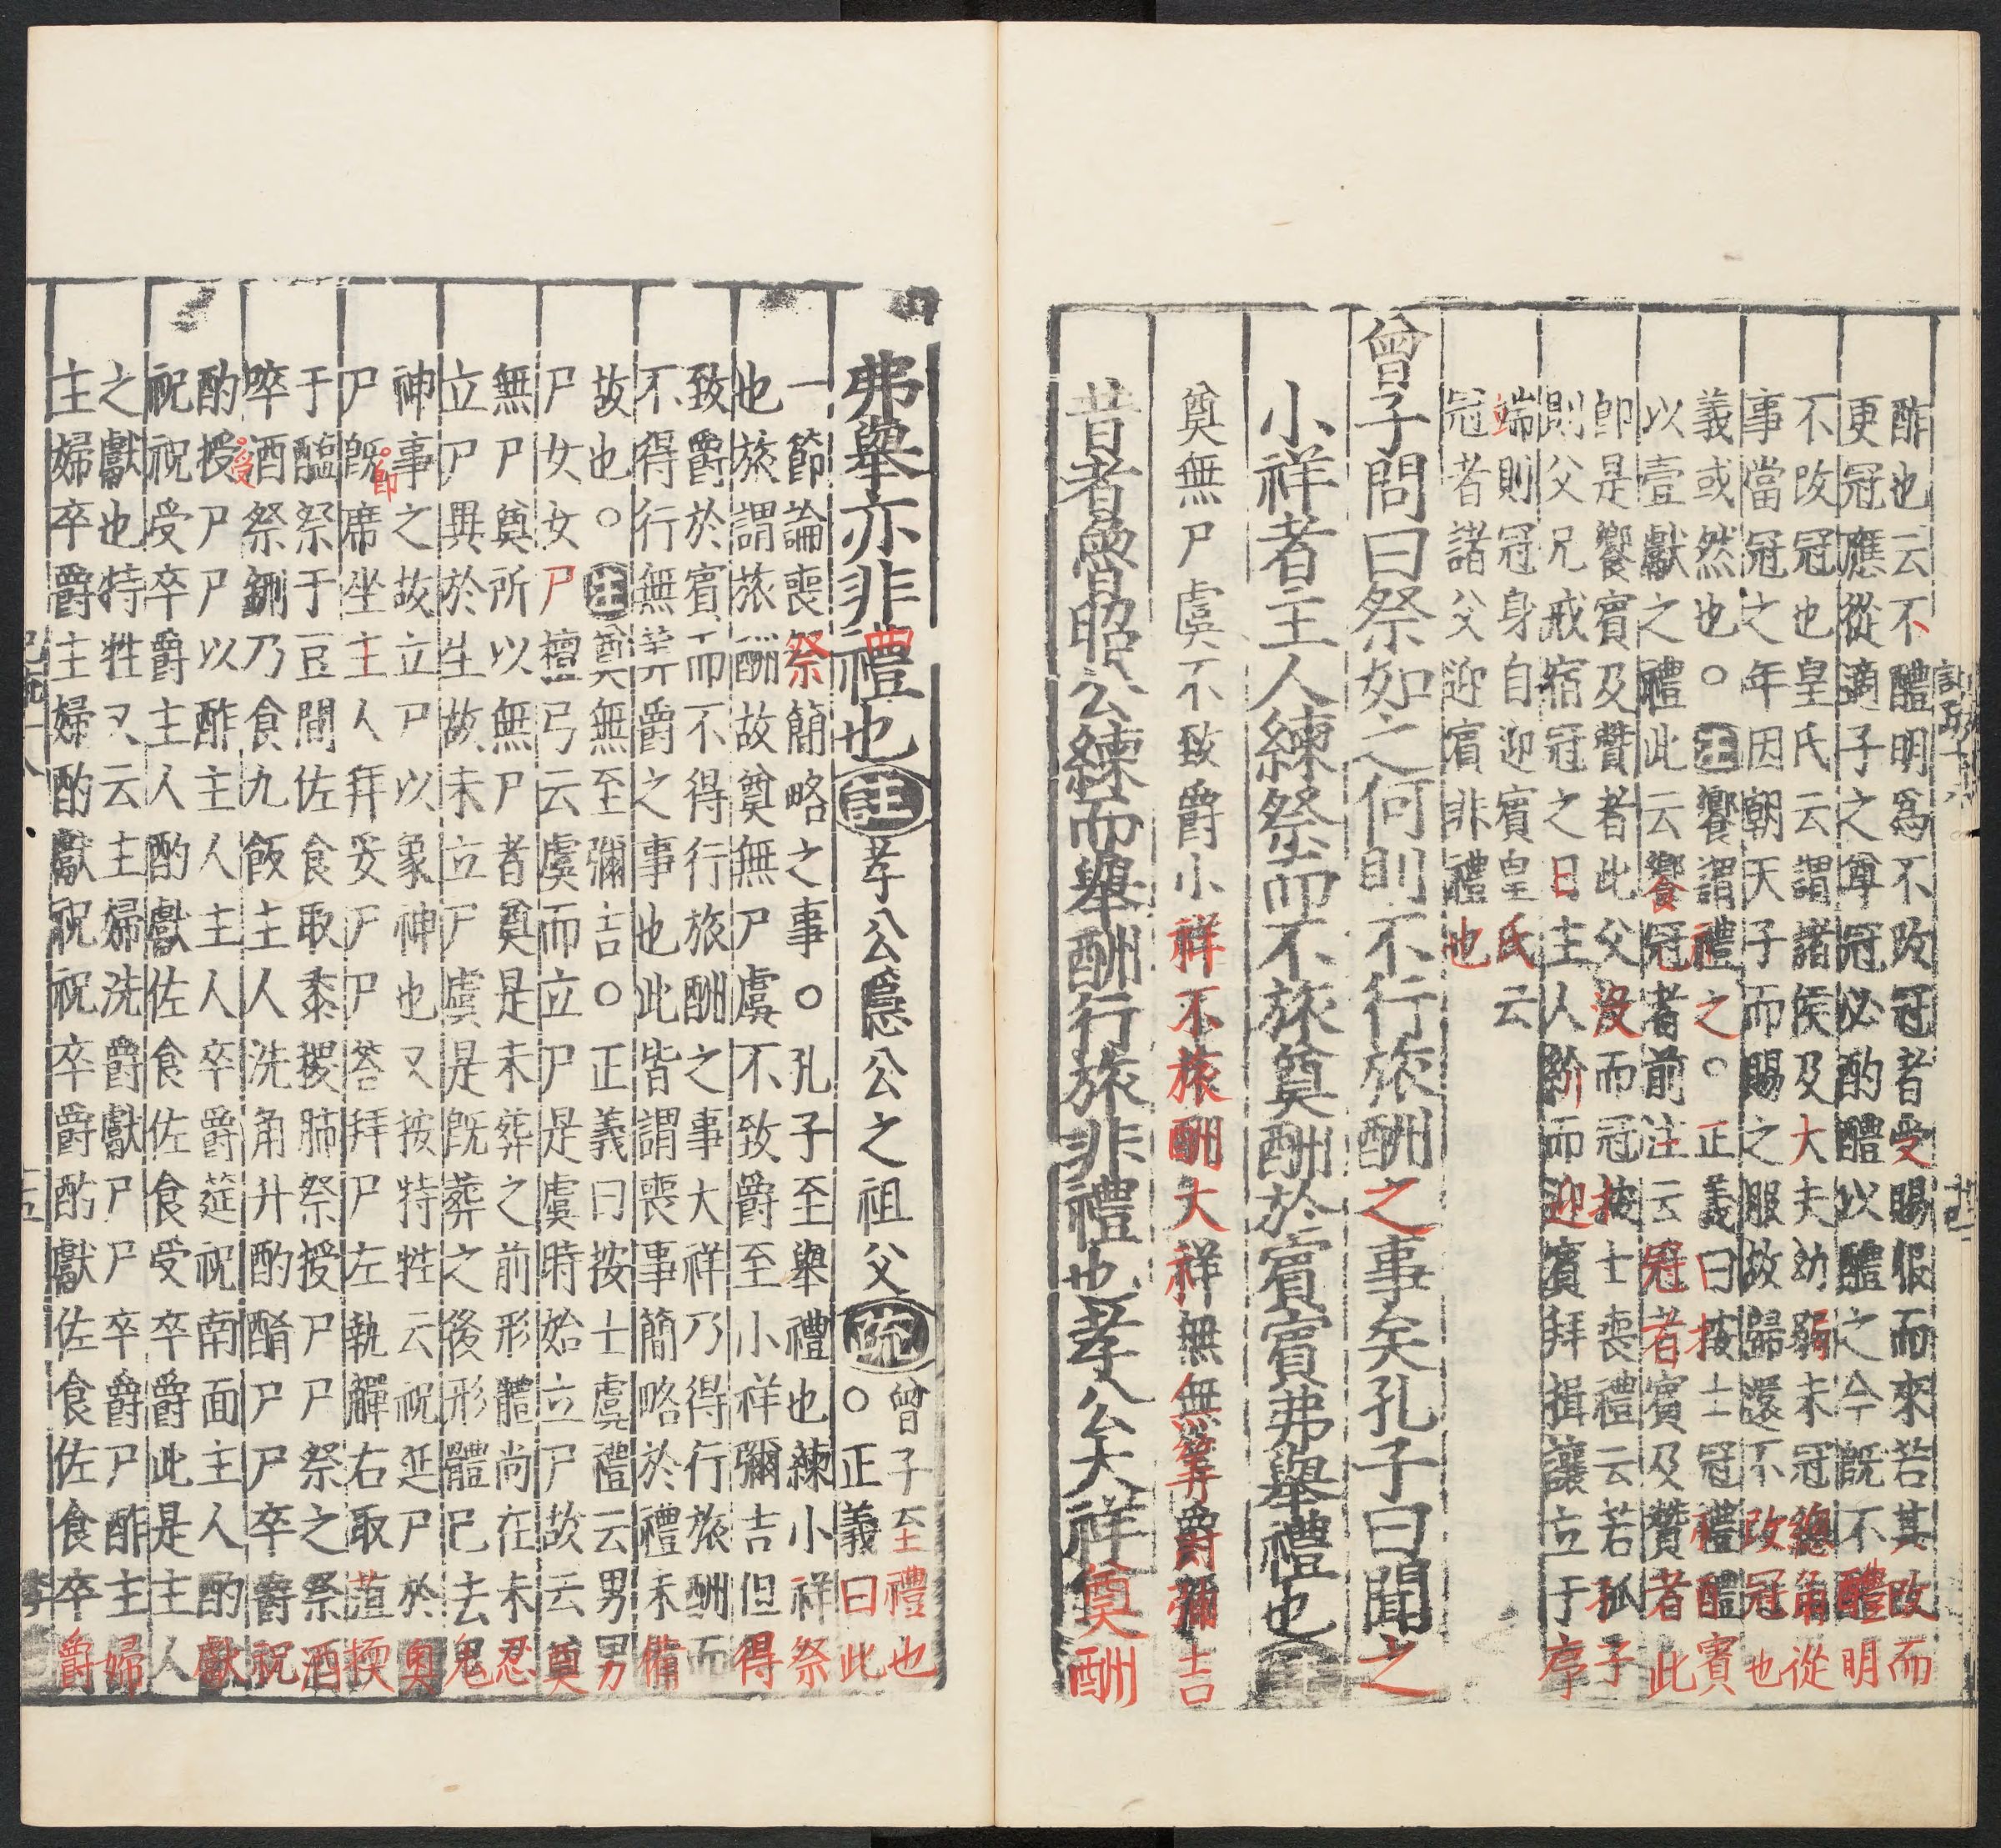 酢也云不醴明爲不改冠者受賜服而來若其改而
更冠應從適子之尊冠必酌醴以醴之今旣不醴明
不改冠也皇氏云謂諸侯及大夫幼弱未冠總角從
事當冠之年因朝天子而賜之服故歸還不改冠也
義或然也○注饗謂禮之○正義曰按士冠禮醴賓
以壹獻之禮此云饗冠者前注云冠者賓及贊者此
卽是饗賓及贊者此父沒而冠按士喪禮云若孤子
則父兄戒宿冠之日主人紒而迎賓拜揖讓立于序
端則冠身自迎賓皇氏云
冠者諸父迎賓非禮也
曾子問曰祭如之何則不行旅酬之事矣孔子曰聞之
小祥者主人練祭而不旅奠酬於賓賓弗舉禮也註
奠無尸虞不致爵小祥不旅酬大祥無無筭爵彌吉
昔者魯昭公練而舉酬行旅非禮也孝公大祥奠酬
弗舉亦非禮也註孝公隱公之祖父疏
曾子至禮也
○正義曰此
一節論喪祭簡略之事○孔子至舉禮也練小祥祭
也旅謂旅酬故奠無尸虞不致爵至小祥彌吉但得
致爵於賓而不得行旅酬之事大祥乃得行旅酬而
不得行無筭爵之事也此皆謂喪事簡略於禮未備
故也○注奠無至彌吉○正義曰按士虞禮云男男
尸女女尸檀弓云虞而立尸是虞時始立尸故云奠
無尸奠所以無尸者奠是未葬之前形體尚在未忍
立尸異於生故未立尸虞是旣葬之後形體已去鬼
神事之故立尸以象神也又按特牲云祝延尸於奧
尸旣卽席坐主人拜妥尸尸荅拜尸左執觶右取菹㨎
于醢祭于豆間佐食取黍稷肺祭授尸尸祭之祭酒
啐酒祭鉶乃食九飯主人洗角升酌酳尸尸卒爵祝
酌授受尸尸以酢主人主人卒爵筵祝南面主人酌獻
祝祝受卒爵主人酌獻佐食佐食受卒爵此是主人
之獻也特牲又云主婦洗爵獻尸尸卒爵尸酢主婦
主婦卒爵主婦酌獻祝祝卒爵酌獻佐食佐食卒爵